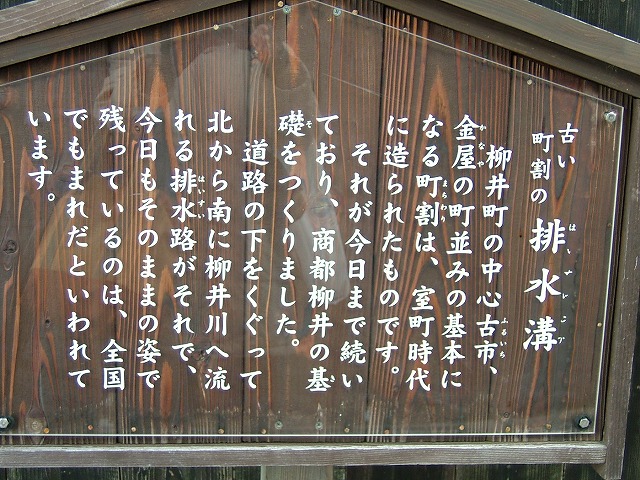 古い
町割の 排水溝
柳井町の中心古市、
金屋の町並みの基本に
なる町割は、室町時代
に造られたものです。
それが今日まで続い
ており、商都柳井の基
礎をつくりました。
道路の下をくぐって
北から南に柳井川へ流
れる排水路がそれで、
今日もそのままの姿で
残っているのは、全国
でもまれだといわれて
います。